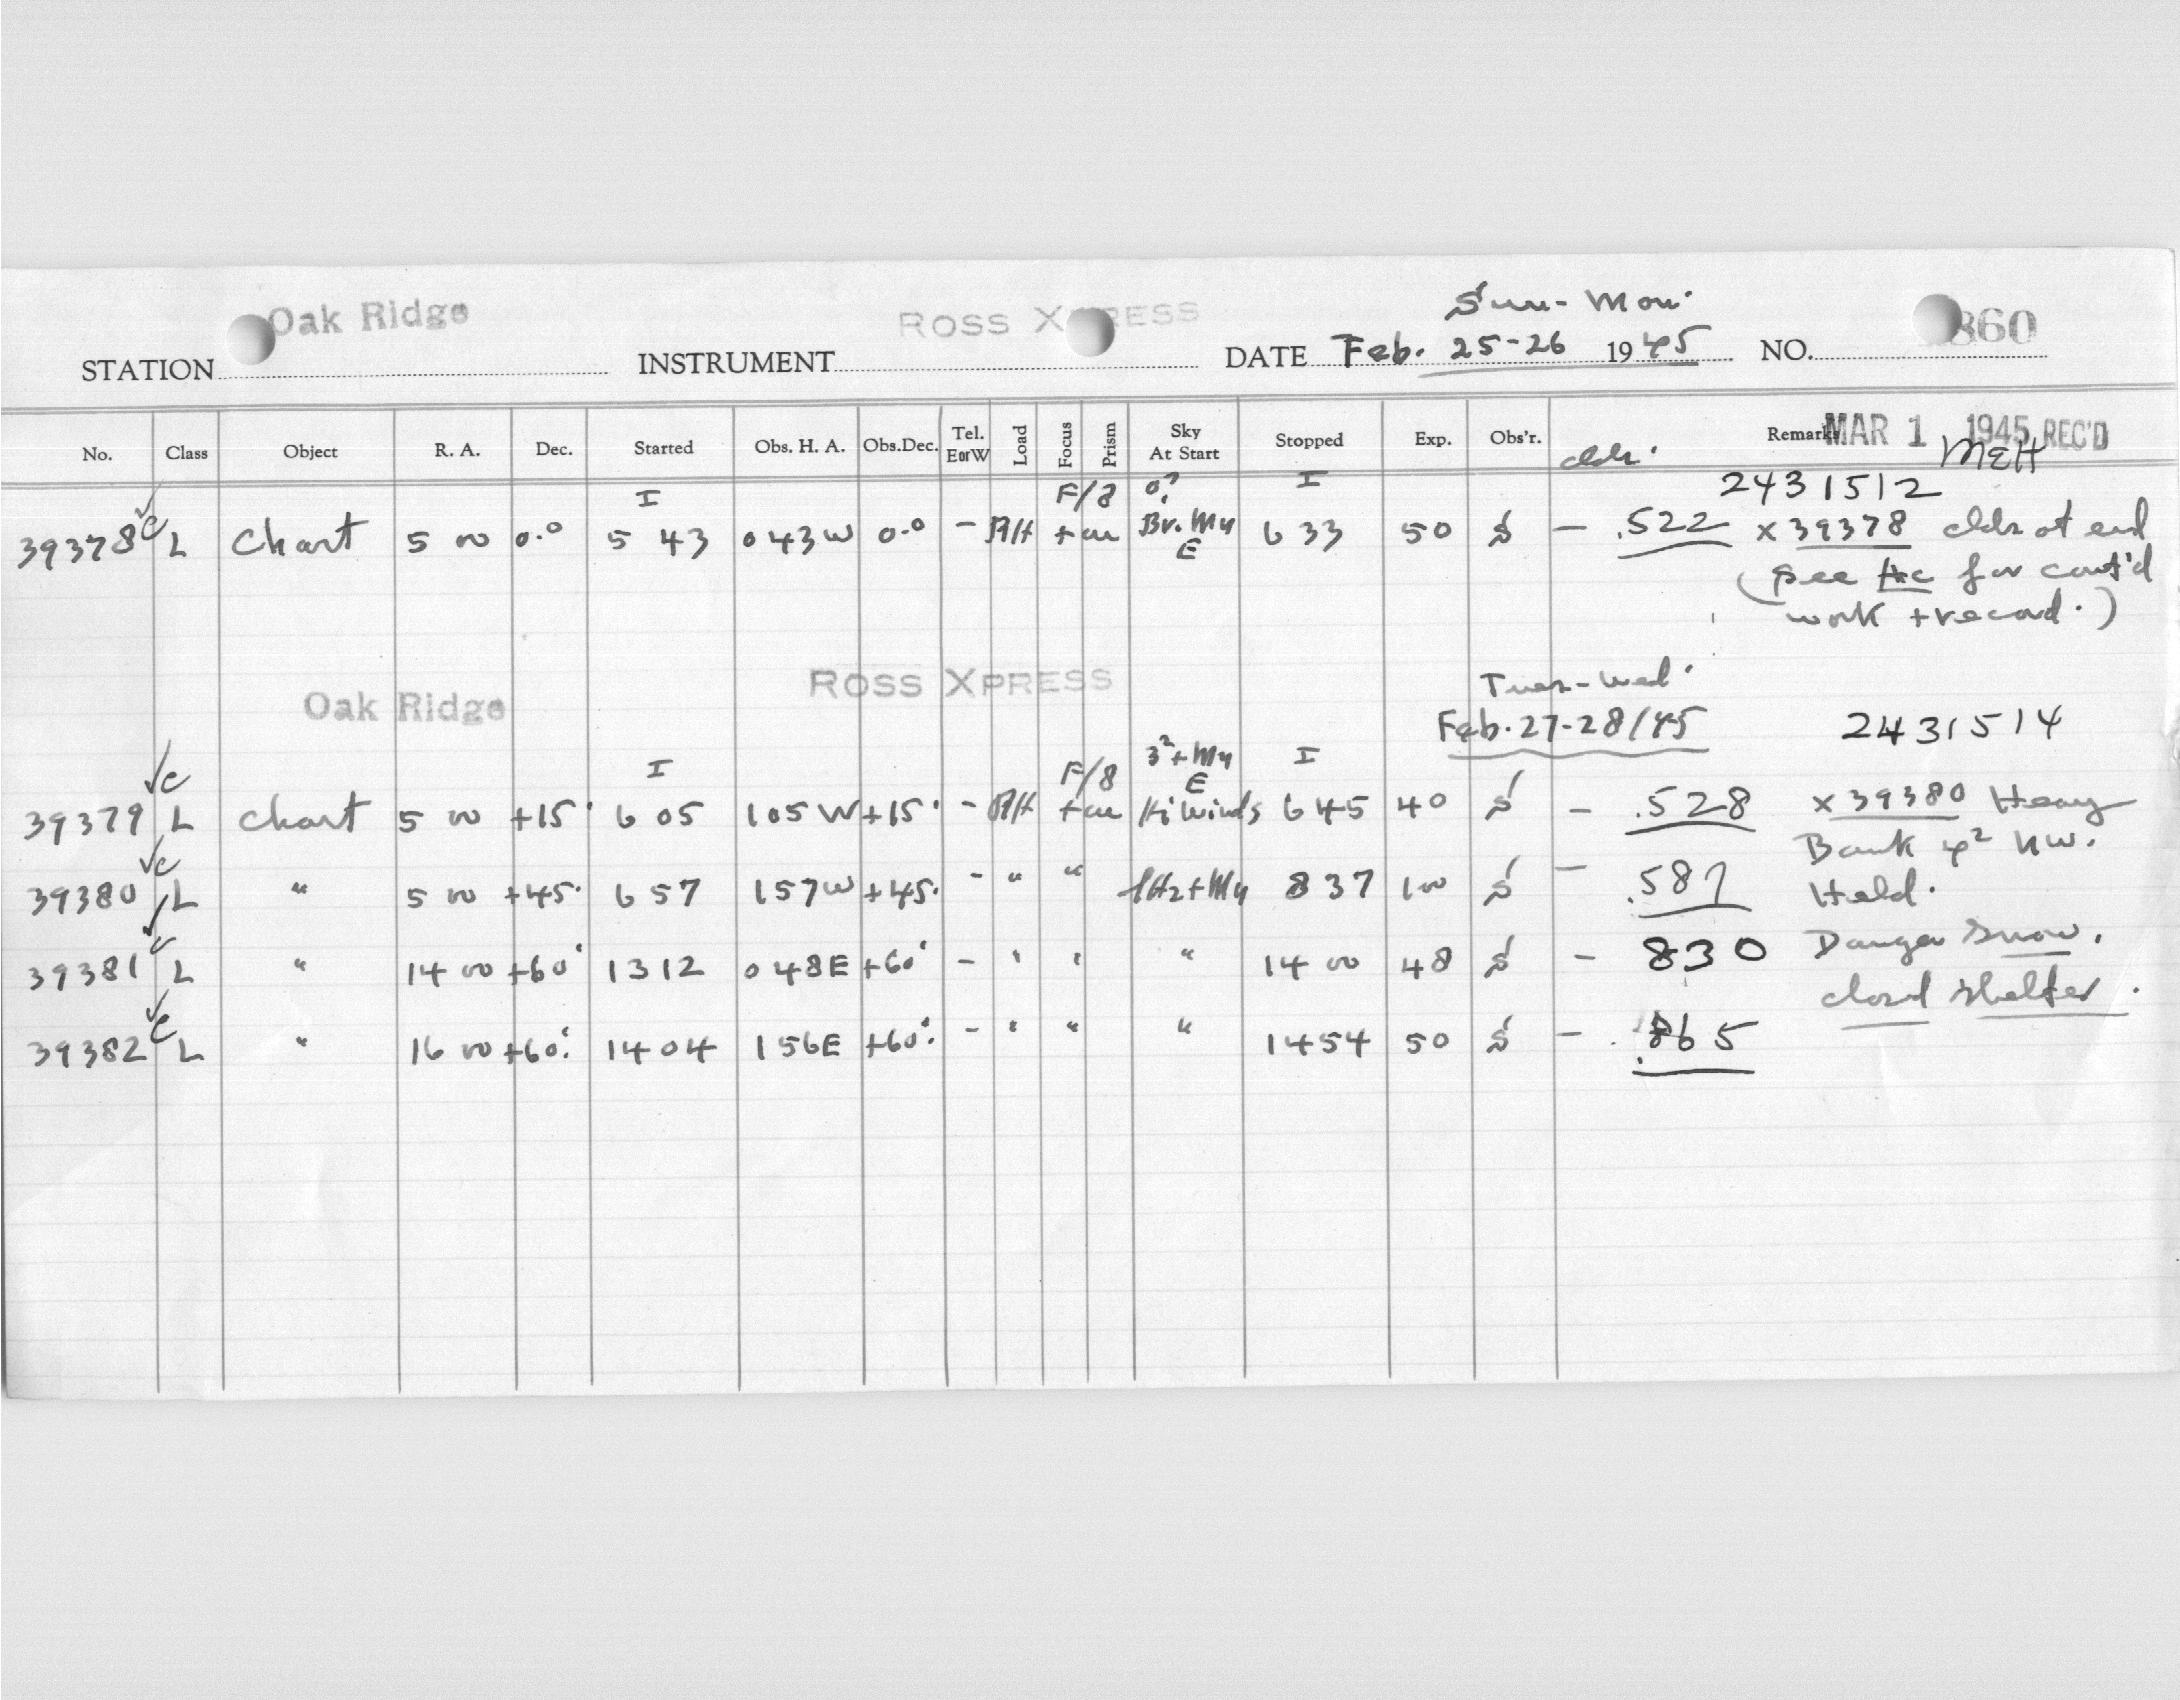 Sun - Mon.
STATION Oak Ridge INSTRUMENT ROSS XPRESS DATE Feb. 25-26 1945 NO. 860
No. Class Object R. A. Dec. Started Obs. H. A. Obs.Dec. Tel. E or W Load Focus Prism Sky At Start Stopped Exp. Obs'r. Remarks MAR 1 1945 REC'D
clds. MEH
I F/8 0? I 2431512
39378 c L Chart 5 00 0.° 5 43 0 43 W 0.° - AH Br. My E 6 33 50 S - .522 x 39378 clds at end
(see Ac for cont'd
work + record.)
Oak Ridge ROSS XPRESS Tues-Wed.
Feb. 27-28/45 2431514
I F/8 3²+My E I
39379 c L Chart 5 00 +15° 6 05 1 05 W +15° - AH Hi Winds 6 45 40 S - .528 x 39380 Heavy
Bank 4² NW.
39380 c L " 5 00 +45° 6 57 1 57 W +45° - " " 8 37 100 S - .587 Held.
39381 c L " 14 00 +60° 13 12 0 48 E +60° - " " " 14 00 48 S - 830 Danger Snow.
closed shelter.
39382 c L " 16 00 +60° 14 04 1 56 E +60° - " " " 14 54 50 S - .865